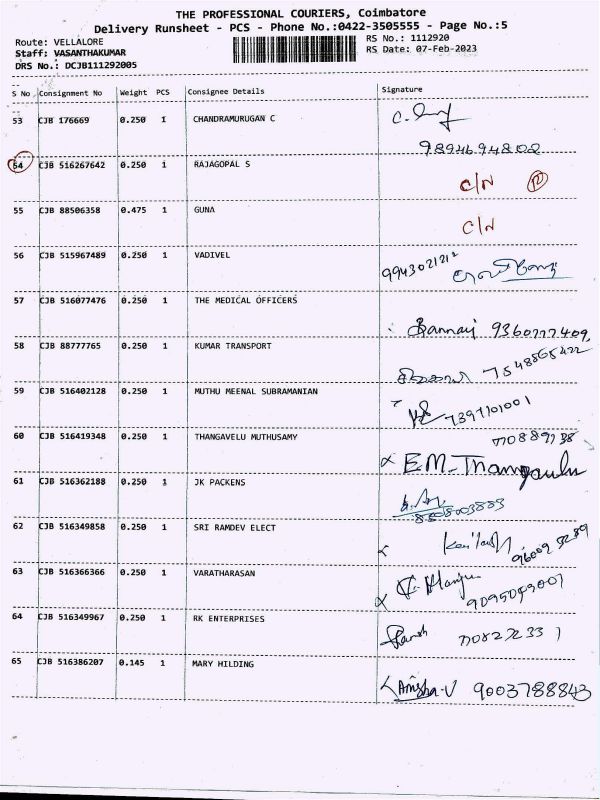 THE PROFESSIONAL COURIERS, Coimbatore
Delivery Runsheet - PCS - Phone No.:0422-3505555 - Page No.:5
Route: VELLALORE
RS No.: 1112920
Staff: VASANTHAKUMAR
RS Date: 07-Feb-2023
DRS No.: DCJB111292005
S No Consignment No Weight PCS Consignee Details Signature
53 CJB 176669 0.250 1 CHANDRAMURUGAN C
9894694802
54 CJB 516267642 0.250 1 RAJAGOPAL S
C/N
55 CJB 88506358 0.475 1 GUNA
C/N
56 CJB 515967489 0.250 1 VADIVEL
9943021212
57 CJB 516077476 0.250 1 THE MEDICAL OFFICERS
9360777409
58 CJB 88777765 0.250 1 KUMAR TRANSPORT
7548865422
59 CJB 516402128 0.250 1 MUTHU MEENAL SUBRAMANIAN
7397101001
60 CJB 516419348 0.250 1 THANGAVELU MUTHUSAMY
E.M. Thangavelu
61 CJB 516362188 0.250 1 JK PACKENS
62 CJB 516349858 0.250 1 SRI RAMDEV ELECT
63 CJB 516366366 0.250 1 VARATHARASAN
64 CJB 516349967 0.250 1 RK ENTERPRISES
65 CJB 516386207 0.145 1 MARY HILDING
Anisha.V 9003788843